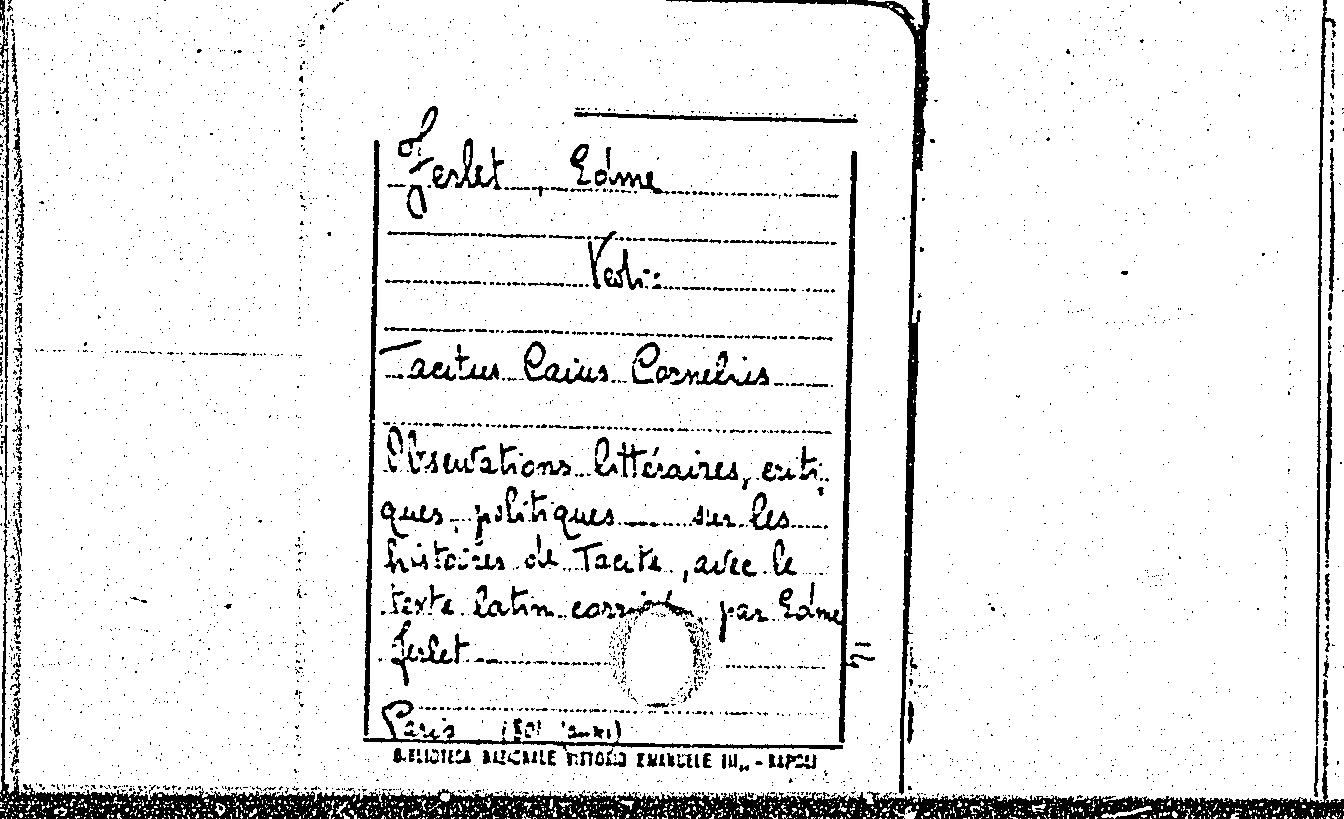 Ferlet, Edme
Vedi:
Tacitus Caius Cornelius
Observations littéraires, criti-
ques, politiques sur les
histoires de Tacite, avec le
texte latin corrigé par Edme
Ferlet
Paris
BIBLIOTECA NAZIONALE VITTORIO EMANUELE III,, - NAPOLI